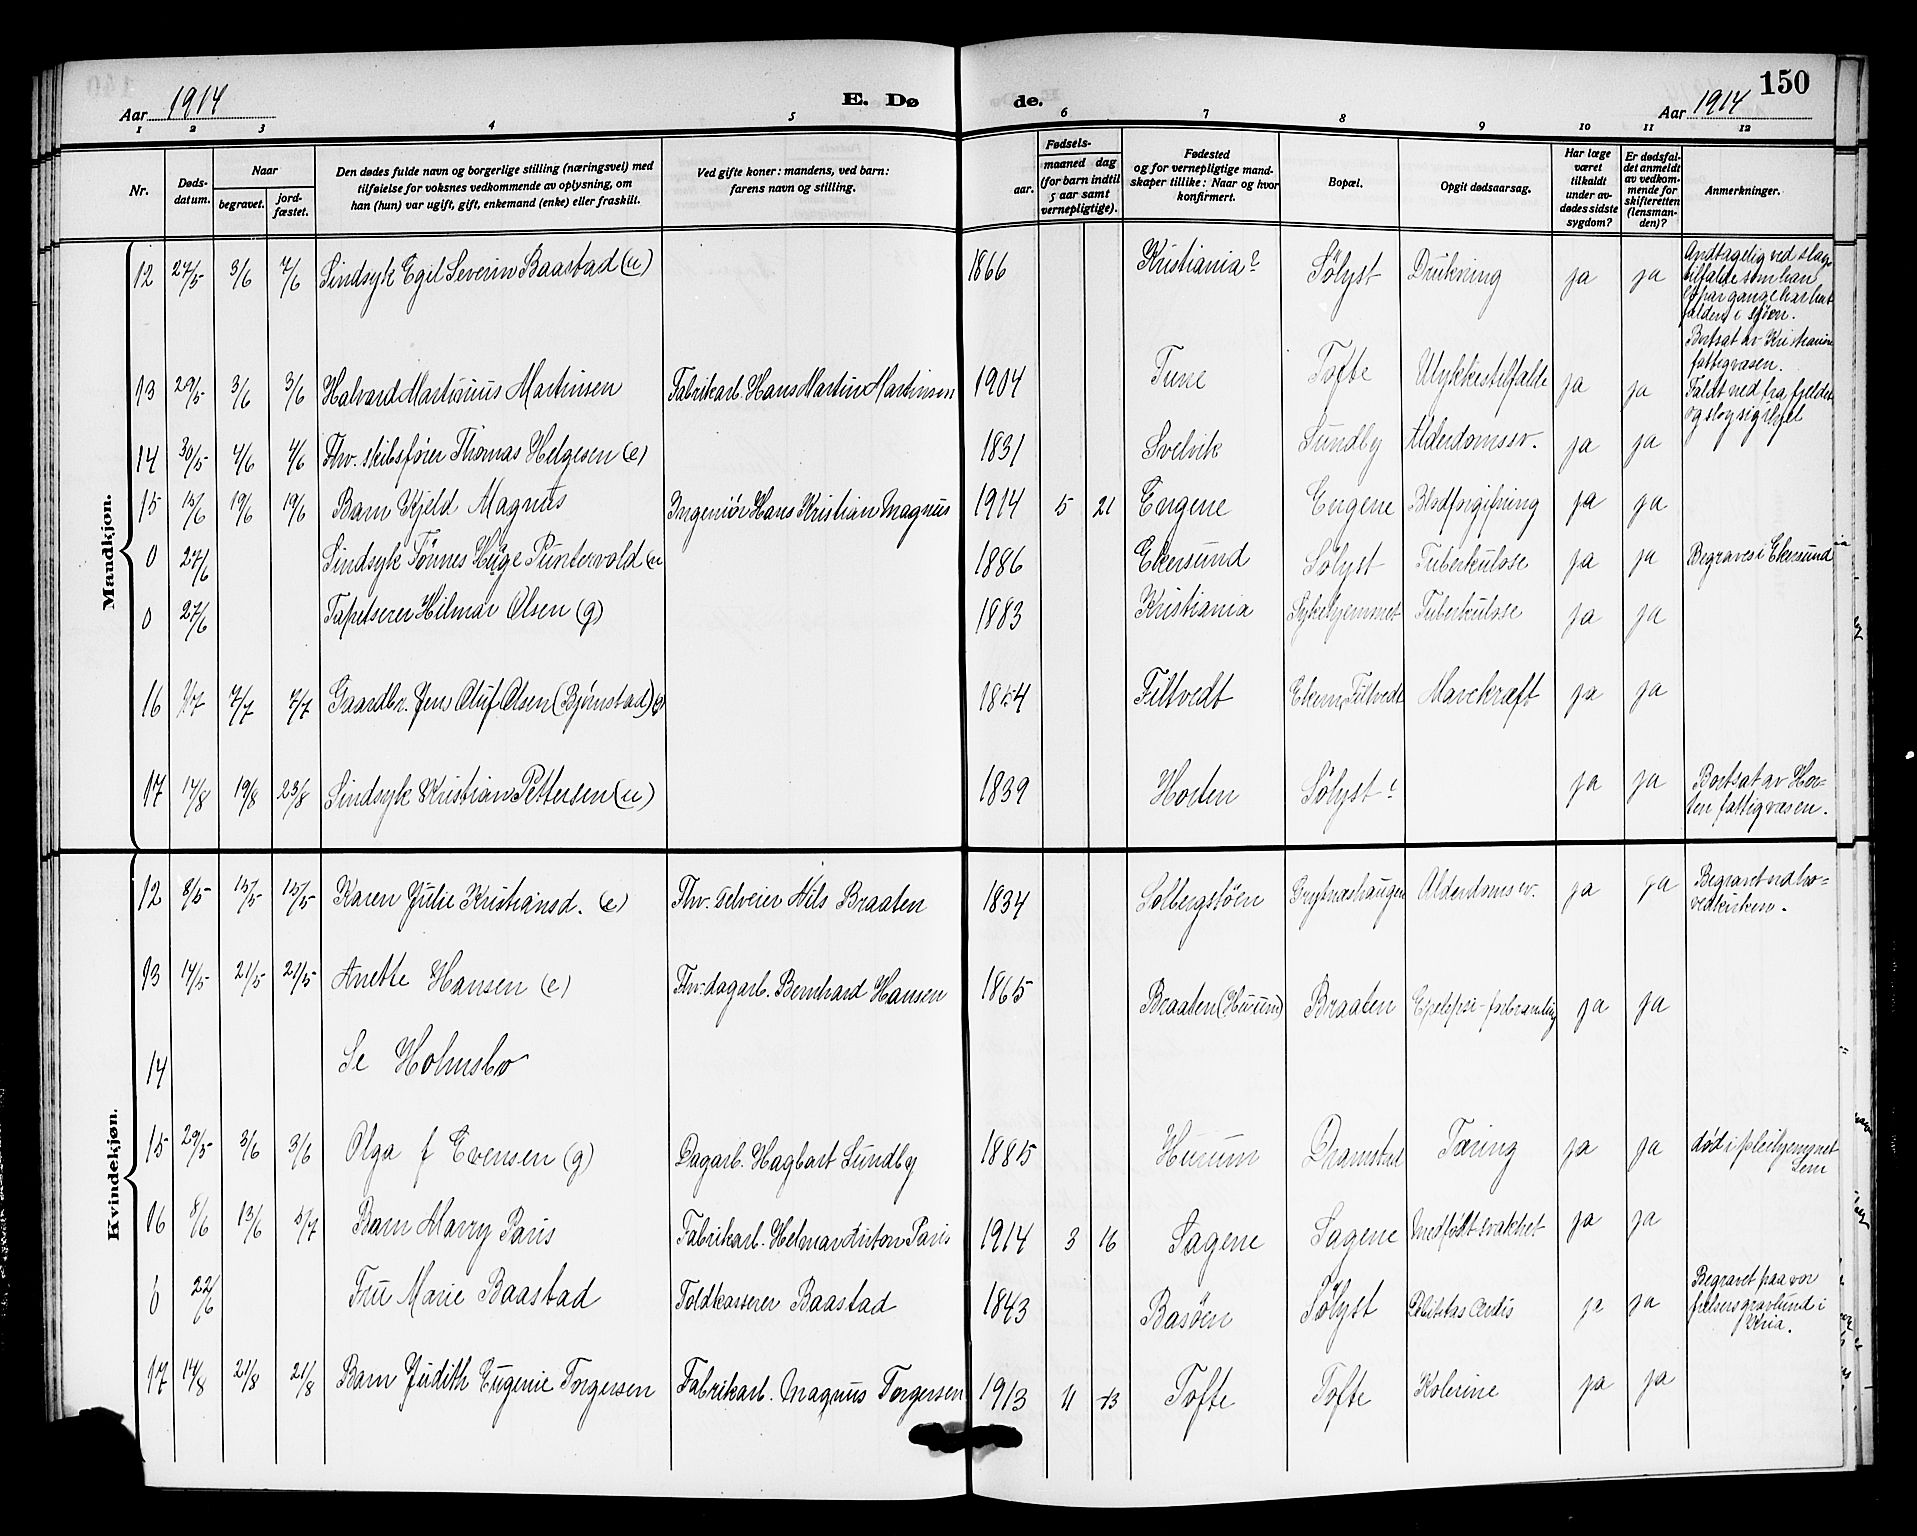 Aar 1914
E. Dø de.
Aar 1914
150
1 2 3 4 5 6 7 8 9 10 11 12
Nr.
Døds-datum.
Naar
begravet.
jord-fæstet.
Den dødes fulde navn og borgerlige stilling (næringsvei) med
tilføielse for voksnes vedkommende av oplysning, om
han (hun) var ugift, gift, enkemand (enke) eller fraskilt.
Ved gifte koner: mandens, ved barn:
farens navn og stilling.
Fødsels-
aar.
maaned dag
(for barn indtil
5 aar samt
vernepligtige).
Fødested
og for vernepligtige mand-
skaper tillike: Naar og hvor
konfirmert.
Bopæl.
Opgit dødsaarsag.
Har læge
været
tilkaldt
under av-
dødes sidste
sygdom?
Er dødsfal-
det anmeldt
av vedkom-
mende for
skifteretten
(lensman-
den)?
Anmerkninger.
Mandkjøn.
12 27/5 3/6 7/6 Sindsyk Egil Severin Baastad (u) 1866 Kristiania? Sølyst Drukning ja ja
tilfælde som han
falden i sjøen.
Bortsat av Kristiania
fattigvæsen.
13 29/5 3/6 3/6 Halvard Martinius Martinsen Fabrikarb. Hans Martin Martinsen 1904 Tune Tofte Ulykkestilfælde ja ja
Faldt ned fra fjeldet
og slog sig ihjel
14 30/5 4/6 4/6 Fhv. skibsfører Thomas Helgesen (e) 1831 Svelvik Sundby Alderdomssv. ja ja
15 15/6 19/6 19/6 Barn Kjeld Magnus Ingeniør Hans Kristian Magnus 1914 5 21 Engene Engene Blodforgiftning ja ja
0 27/6 Sindsyk Tønnes Høge Puntervold (u 1886 Ekersund Sølyst Tuberkulose ja ja Begraves i Ekersund
0 27/6 Tapetserer Hilmar Olsen (g) 1883 Kristiania Sykehjemmet Tuberkulose ja ja
16 7/7 7/7 Gaardbr. Jens Oluf Olsen (Bjørnstad) 1854 Filtvedt Ekern, Filtvedt Mavekræft ja ja
17 14/8 19/8 23/8 Sindsyk Kristian Pettersen (u) 1839 Horten Sølyst ja ja Bortsat av Hor-
ten fattigvæsen.
Kvindekjøn.
12 8/5 15/5 15/5 Karen Julie Kristiansd. (e) Fhv. selveier Nils Braaten 1834 Solbergstøen Grytnæshaugen Alderdomssv. ja ja Begravet ved ho-
vedkirken.
13 14/5 21/5 21/5 Anette Hansen (e) Fhv. dagarb. Bernhard Hansen 1865 Braaten (Hurum) Braaten Epelepsi-forbrænding ja ja
14 Se Holmsbo
15 29/5 3/6 3/6 Olga f Evensen (g) Dagarb. Hagbart Sundby 1885 Hurum Dramstad Tæring ja ja død i pleihjemmet
Sem
16 8/6 13/6 5/7 Barn Marry Paris Fabrikarb. Helmar Anton Paris 1914 3 16 Sagene Sagene Medfødt svakhet ja ja
0 22/6 Fru Marie Baastad Toldkasserer Baastad 1843 Basøen Sølyst Debilitas cordis ja ja Begravet paa vor
frelsers gravlund i
Kria.
17 14/8 21/8 21/8 Barn Judith Eugenie Torgersen Fabrikarb. Magnus Torgersen 1913 11 13 Tofte Tofte Kolerine ja ja